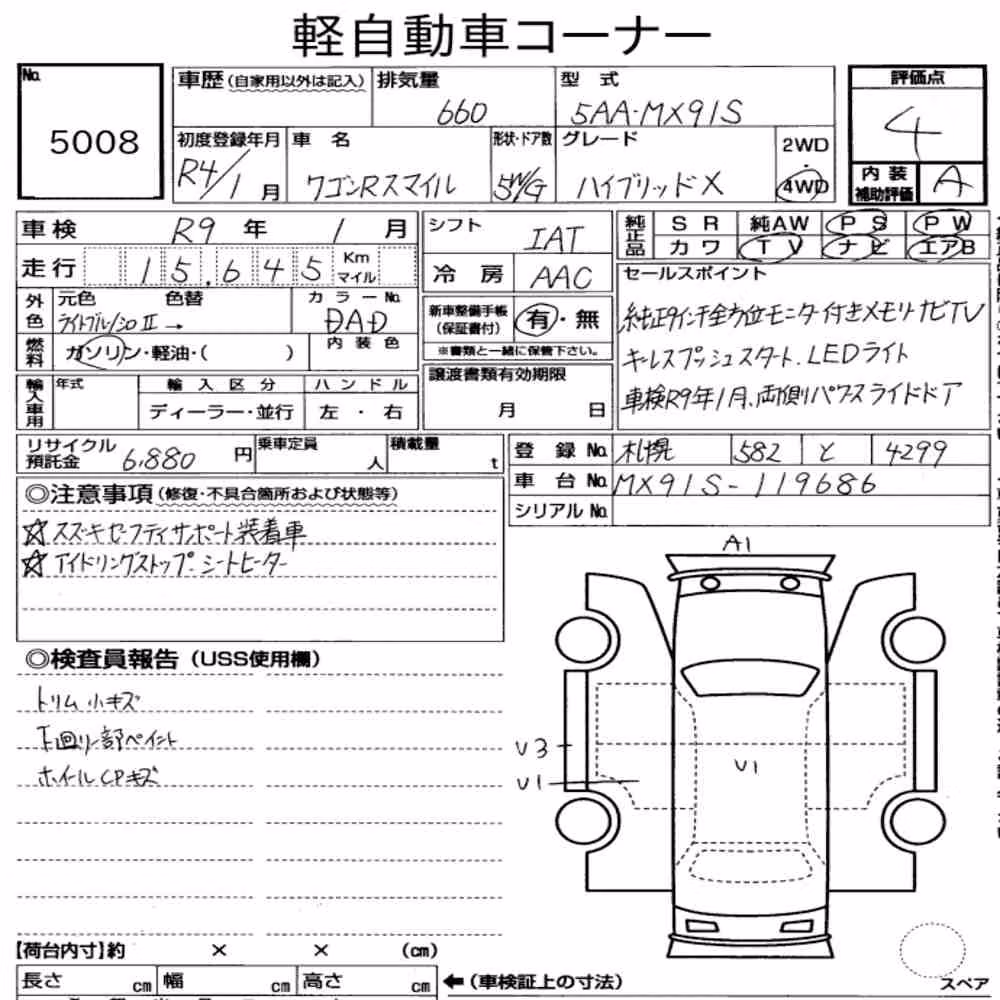 軽自動車コーナー
No. 5008
車歴(自家用以外は記入) 排気量 660 型式 5AA-MX91S
評価点 4
初度登録年月 R4/1月 車名 ワゴンRスマイル 形状・ドア数 5W/G グレード ハイブリッドX 2WD・4WD
内装補助評価 A
車検 R9年 1月
走行 15,645 Km マイル
シフト IAT
冷房 AAC
純正品 SR 純AW PS PW
カワ TV ナビ エアB
外色 元色 色替 カラーNo.
ライトブル/シロⅡ→ DAD
燃料 ガソリン・軽油・( ) 内装色
新車整備手帳(保証書付) 有・無
※書類と一緒に保管下さい。
セールスポイント
純正9インチ全方位モニター付きメモリナビTV
キーレスプッシュスタート、LEDライト
車検R9年1月、両側パワースライドドア
輸入車用 年式 輸入区分 ハンドル
ディーラー・並行 左・右
譲渡書類有効期限
月 日
リサイクル預託金 6,880円 乗車定員 人 積載量 t
登録No. 札幌 582 と 4299
車台No. MX91S-119686
シリアルNo.
◎注意事項(修復・不具合箇所および状態等)
☆スズキセーフティサポート装着車
☆アイドリングストップ シートヒーター
◎検査員報告(USS使用欄)
トリム小キズ
下廻り一部ペイント
ホイールCPキズ
A1
V3
V1
V1
【荷台内寸】約 × × (cm)
長さ cm 幅 cm 高さ cm ←(車検証上の寸法)
スペア